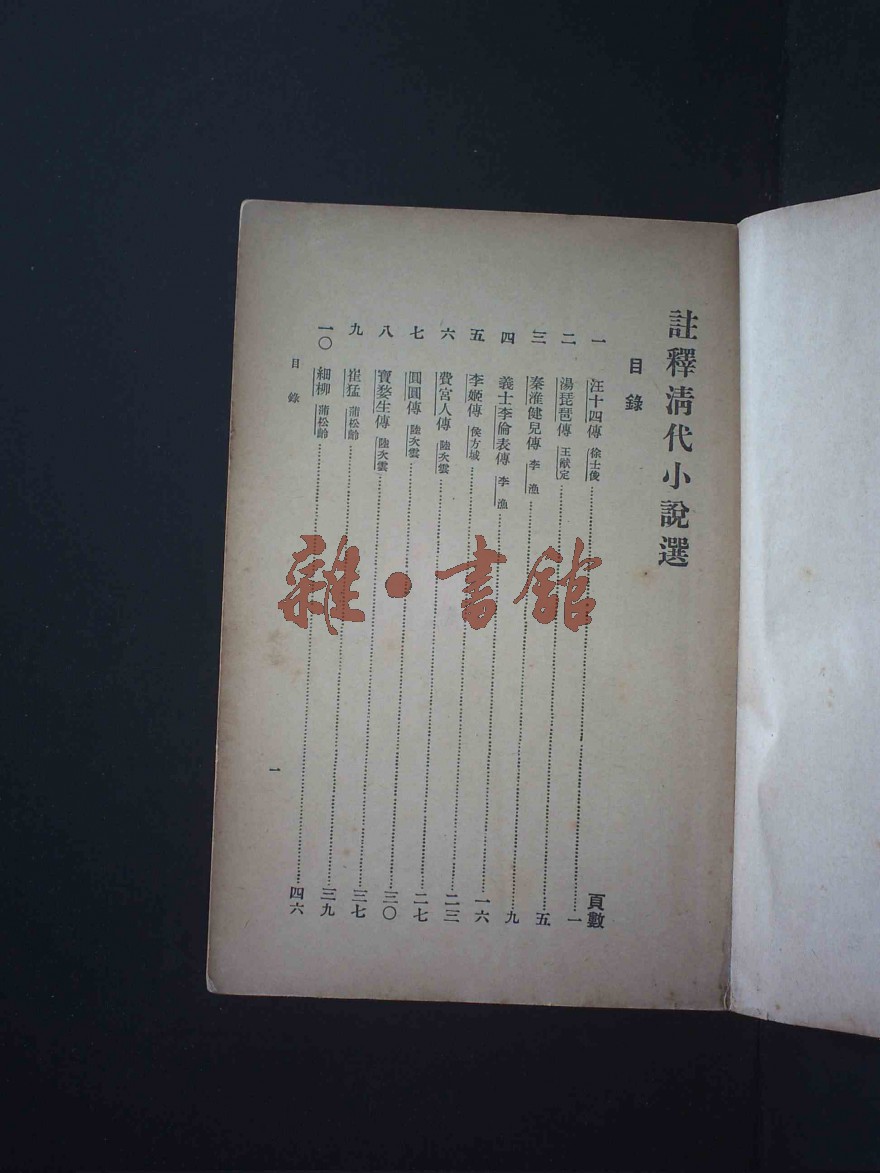 註釋清代小說選
目錄
頁數
一 汪十四傳 徐士俊 一
二 湯琵琶傳 王猷定 五
三 秦淮健兒傳 李漁 九
四 義士李倫表傳 李漁 一六
五 李姬傳 侯方域 二三
六 費宮人傳 陸次雲 二七
七 圓圓傳 陸次雲 三〇
八 寶婺生傳 陸次雲 三七
九 崔猛 蒲松齡 三九
一〇 細柳 蒲松齡 四六
目錄
一
雜·書館